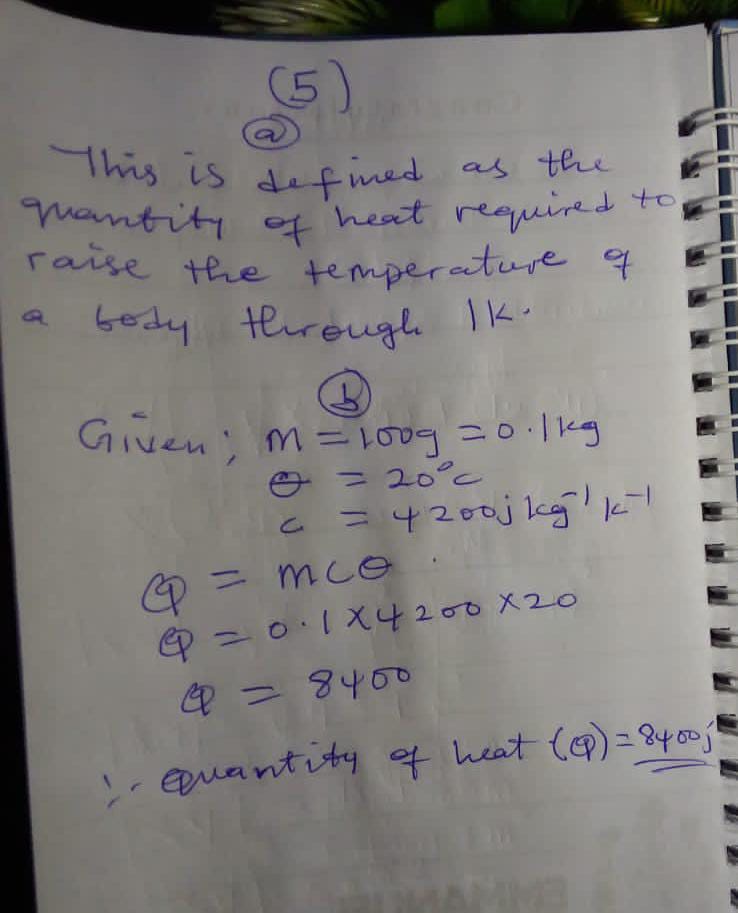 (5)
(a)
This is defined as the
quantity of heat required to
raise the temperature of
a body through 1k.
(b)
Given; m = 100g = 0.1kg
θ = 20°c
c = 4200j kg⁻¹ k⁻¹
Q = mcθ
Q = 0.1 x 4200 x 20
Q = 8400
∴ Quantity of heat (Q) = 8400j